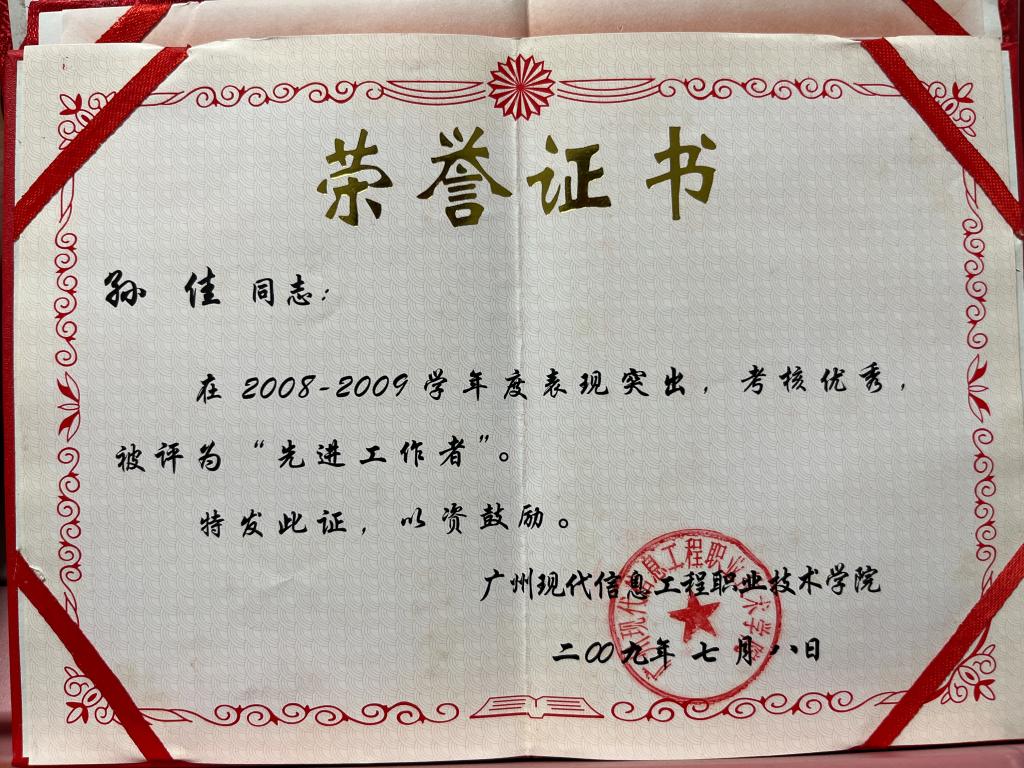 荣誉证书
孙 佳 同志：
在2008-2009学年度表现突出，考核优秀，
被评为“先进工作者”。
特发此证，以资鼓励。
广州现代信息工程职业技术学院
二00九年 七月 八日
广州现代信息工程职业技术学院